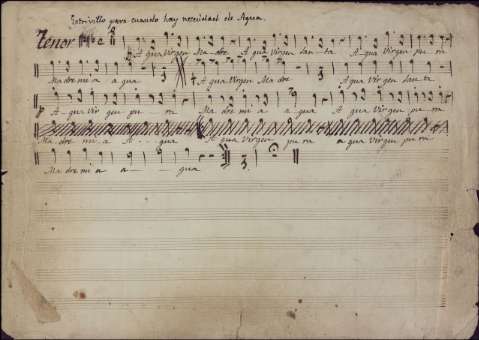 Estrivillo para cuando hay necesidad de Agua.
Tenor
Agua Virgen Ma - dre Agua Virgen san - ta Agua Virgen pu - ra
Madre mi - a agua Agua Virgen Madre Agua Virgen santa
A - gua Vir gen pu - ra Madre mi a a - gua A gua Virgen pu - ra
Ma dre mi - a A - - gua A gua Virgen pu ra agua Virgen pura
Ma dre mi a a - gua